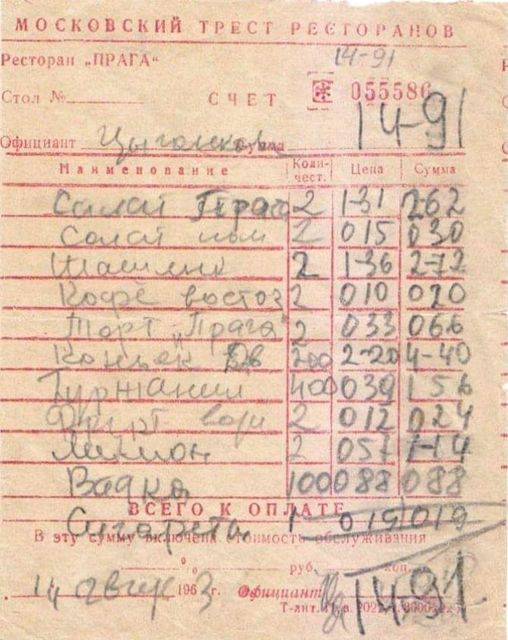 МОСКОВСКИЙ ТРЕСТ РЕСТОРАНОВ
Ресторан „ПРАГА“ 14-91
Стол № СЧЕТ 055586
Официант Цыганков Сумма 14-91
Наименование Коли-чест. Цена Сумма
Салат Прага 2 1-31 2-62
Салат пом 2 015 030
Шашлык 2 1-36 2-72
Кофе восточ 2 010 020
Торт „Прага" 2 033 066
Коньяк 200 2-20 4-40
Гурджаани 400 039 156
Фрукт воды 2 012 024
Лимон 2 057 1-14
Водка 100 088 088
ВСЕГО К ОПЛАТЕ
Сигарета 1 019 019
В эту сумму включена стоимость обслуживания
% руб. коп.
14 август 1963 г. Официант 14-91
Т-лит.